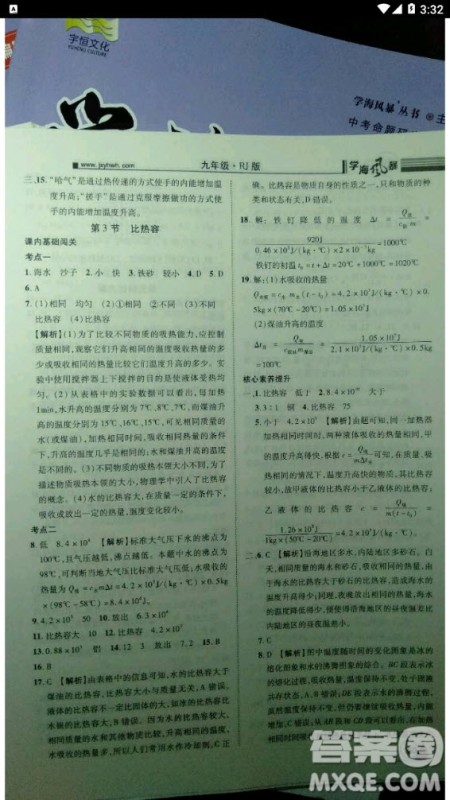 3:32
宇恒文化
YUHENG CULTURE
学海风暴丛书
中考命题研
www.jxyheh.com
九年级·RJ版
学海风暴
三、15.“哈气”是通过热传递的方式使手的内能增加温
度升高;“搓手”是通过克服摩擦做功的方式使
手的内能增加温度升高。
第3节 比热容
课内基础闯关
考点一
1.海水 沙子 2.小 快 3.铁砂 较小 4.D 5.D
6.A
7.(1)相同 均匀 (2)①相同 ②不同 (3)不同
比热容 (4)比热容
【解析】(1)为了比较不同物质的吸热能力,应控制
质量相同,观察它们升高相同的温度吸收热量的多
少或吸收相同热量比较它们温度升高的多少。实
验中使用搅拌器上下搅拌的目的是使液体受热均
匀。(2)从表格中的实验数据可以看出,每加热
1min,水升高的温度分别为7℃、8℃、7℃,而煤油升
高的温度分别为15℃、16℃、15℃,可见相同质量的
水(或煤油),加热时间相同,吸收相同热量的条件
下,升高的温度几乎是相同的;水和煤油升高的温度
是不同的。(3)不同物质的吸热本领大小不同,为了
描述物质吸热本领的大小,物理学中引入了比热容
的概念。(4)水的比热容大,在质量一定的条件下,
吸收或放出一定的热量,温度变化较小。
考点二
8.低 8.4×10⁴ 【解析】标准大气压下水的沸点为
100℃,且气压越低,沸点越低。本题中水的沸点为
98℃,可判断当地大气压比标准大气压低;水吸收的
热量为Q吸=cmΔt=4.2×10³J/(kg·℃)×0.5kg
×(98℃-58℃)=8.4×10⁴J。
9.4.2×10³ 50 10.放出 6.3×10⁴
11.比热容大 10 12.比热容 4.2×10⁷
13.0.88×10³ 铝 14.12 3 放出 7.2 15.B
16.B
17.C 【解析】由表格中的信息可知,水的比热容大于
煤油的比热容,比热容大小与质量无关,A错误。
液体的比热容不一定比固体的大,如冰的比热容比
水银的比热容大,B错误。因为水的比热容大,
相同质量的水和其他物质比较,升高相同的温度,
水吸收的热量多,所以人们常用水作冷却剂,C正
确。比热容是物质自身的性质之一,只和物质的种
类和状态有关,D错误。
18.解:铁钉降低的温度Δt=Q放/cm=
920J/0.46×10³J/(kg·℃)×2×10⁻³kg=1000℃
铁钉的初温t₀=t+Δt=20℃+1000℃=1020℃
19.解:(1)水吸收的热量:
Q水吸=c水m水(t-t₀)=4.2×10³J/(kg·℃)×0.
5kg×(70℃-20℃)=1.05×10⁵J
(2)煤油升高的温度
=100℃
核心素养提升
一、1.比热容 低于 2.8.4×10¹⁰ 大于
3.3:1 铜 4.比热容 75
5.小于 4.2×10³ 【解析】由题可知,同一加热器
加热相同时间时,两种液体吸收的热量相同,甲
的温度升高得快,根据c=Q吸/mΔt可知,在质量、吸
热相同的情况下,温度升高快的物质,其比热容
较小,故甲液体的比热容小于乙液体的比热容;
乙液体的比热容c=Q吸/m(t-t₀)=
1.26×10⁵J/1kg×(50℃-20℃)=4.2×10³J/(kg·℃)。
二、6.C 【解析】沿海地区多水,内陆地区多砂石。白
天,相同质量的海水和砂石,吸收相同的热量,由
于海水的比热容大于砂石的比热容,造成海水的
温度升高得少;同理,夜晚放出相同的热量,海水
的温度降低得少,使得沿海地区的昼夜温差比
内陆地区的昼夜温差小。
7.C
8.D 【解析】图中温度随时间的变化图象是冰的
熔化图象和水的沸腾图象的结合。
的熔化过程,吸收热量,温度保持不变,处于固液
共存状态,A、B错误。DE段表示水的沸腾过程,
虽然温度保持不变,但仍要继续吸收热量,内能
增加,C错误。从AB段和CD段可以看出,在加热
相同时间
答案圈
MXQE.COM